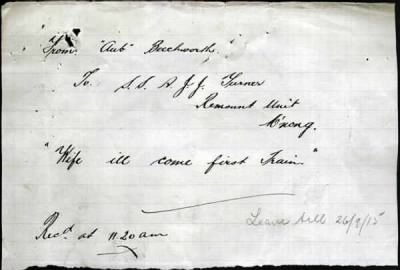 "From. "Aub" Beechworth.
To. S. S. A J. J. Turner
Remount Unit
M'nong.
"Wife ill come first Train"
Leave till 26/9/15
Recd. at 11.20 am